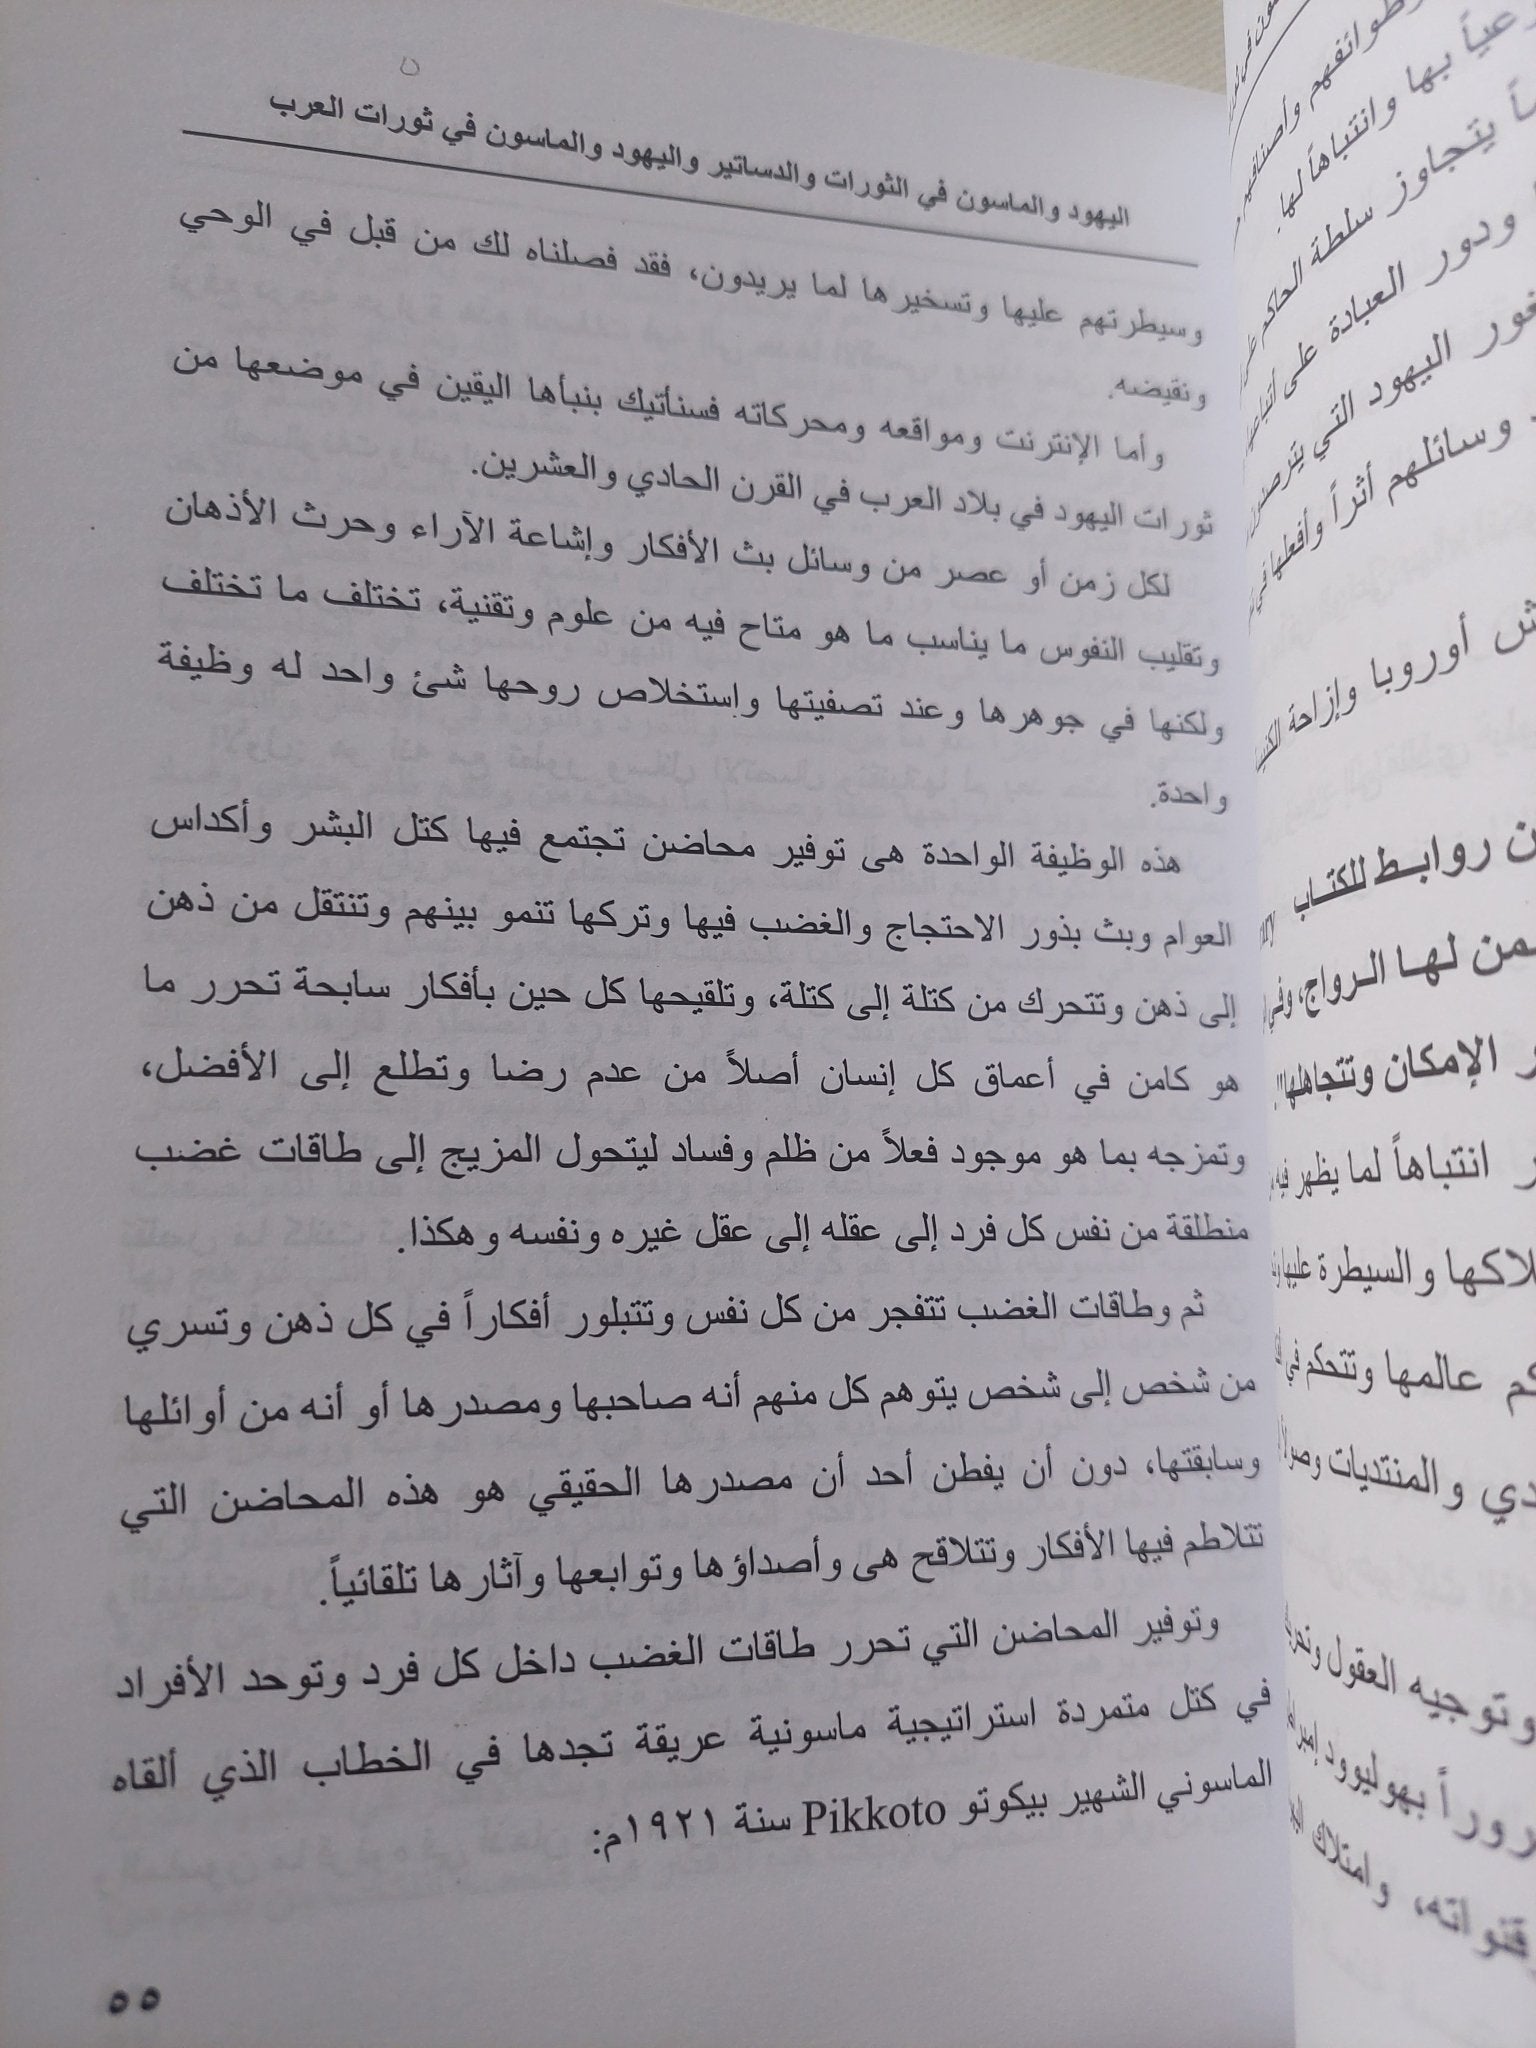 اليهود والماسون في الثورات والدساتير واليهود والماسون في ثورات العرب
وسيطرتهم عليها وتسخيرها لما يريدون، فقد فصلناه لك من قبل في الوحي
ونقيضه.
وأما الإنترنت ومواقعه ومحركاته فسنأتيك بنبأها اليقين في موضعها من
ثورات اليهود في بلاد العرب في القرن الحادي والعشرين.
لكل زمن أو عصر من وسائل بث الأفكار وإشاعة الآراء وحرث الأذهان
وتقليب النفوس ما يناسب ما هو متاح فيه من علوم وتقنية، تختلف ما تختلف
ولكنها في جوهرها وعند تصفيتها وإستخلاص روحها شئ واحد له وظيفة
واحدة.
هذه الوظيفة الواحدة هى توفير محاضن تجتمع فيها كتل البشر وأكداس
العوام وبث بذور الاحتجاج والغضب فيها وتركها تنمو بينهم وتنتقل من ذهن
إلى ذهن وتتحرك من كتلة إلى كتلة، وتلقيحها كل حين بأفكار سابحة تحرر ما
هو كامن في أعماق كل إنسان أصلاً من عدم رضا وتطلع إلى الأفضل،
وتمزجه بما هو موجود فعلاً من ظلم وفساد ليتحول المزيج إلى طاقات غضب
منطلقة من نفس كل فرد إلى عقله إلى عقل غيره ونفسه وهكذا.
ثم وطاقات الغضب تتفجر من كل نفس وتتبلور أفكاراً في كل ذهن وتسري
من شخص إلى شخص يتوهم كل منهم أنه صاحبها ومصدرها أو أنه من أوائلها
وسابقتها، دون أن يفطن أحد أن مصدرها الحقيقي هو هذه المحاضن التي
تتلاطم فيها الأفكار وتتلاقح هى وأصداؤها وتوابعها وآثارها تلقائياً.
وتوفير المحاضن التي تحرر طاقات الغضب داخل كل فرد وتوحد الأفراد
في كتل متمردة استراتيجية ماسونية عريقة تجدها في الخطاب الذي ألقاه
الماسوني الشهير بيكوتو Pikkoto سنة ١٩٢١م:
٥٥
وطوائفهم وأصنافهم
بها وانتباهاً لها.
يتجاوز سلطة الحاكم
ودور العبادة على
اليهود التي
وسائلهم أثراً وأفعلها
أوروبا وإزاحة
روابط للكتاب
لها الرواج،
الإمكان وتتجاهلها"
انتباهاً لما يظهر فيه
والسيطرة عليها
عالمها وتتحكم في
والمنتديات
وتوجيه العقول
بهوليوود
قنواته، وامتلاك